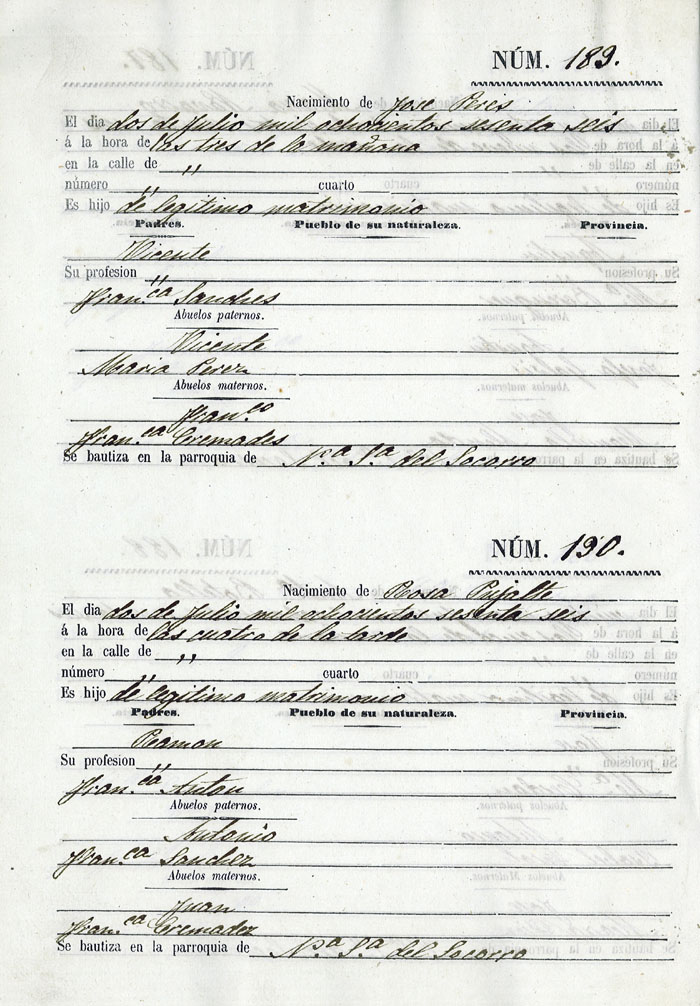 NÚM. 189.
Nacimiento de Jose Peres
El dia dos de Julio mil ochocientos sesenta seis
á la hora de las tres de la mañana
en la calle de "
número " cuarto
Es hijo de legitimo matrimonio
Padres. Pueblo de su naturaleza. Provincia.
Vicente
Su profesion "
Fran.ca Sanches
Abuelos paternos.
Vicente
Maria Perez
Abuelos maternos.
Fran.co
Fran.ca Cremades
Se bautiza en la parroquia de N.a S.a del Socorro
NÚM. 190.
Nacimiento de Rosa Pujalte
El dia dos de Julio mil ochocientos sesenta seis
á la hora de las cuatro de la tarde
en la calle de "
número " cuarto
Es hijo de legitimo matrimonio
Padres. Pueblo de su naturaleza. Provincia.
Ramon
Su profesion "
Fran.ca Anton
Abuelos paternos.
Antonio
Fran.ca Sanchez
Abuelos maternos.
Juan
Fran.ca Cremadez
Se bautiza en la parroquia de N.a S.a del Socorro